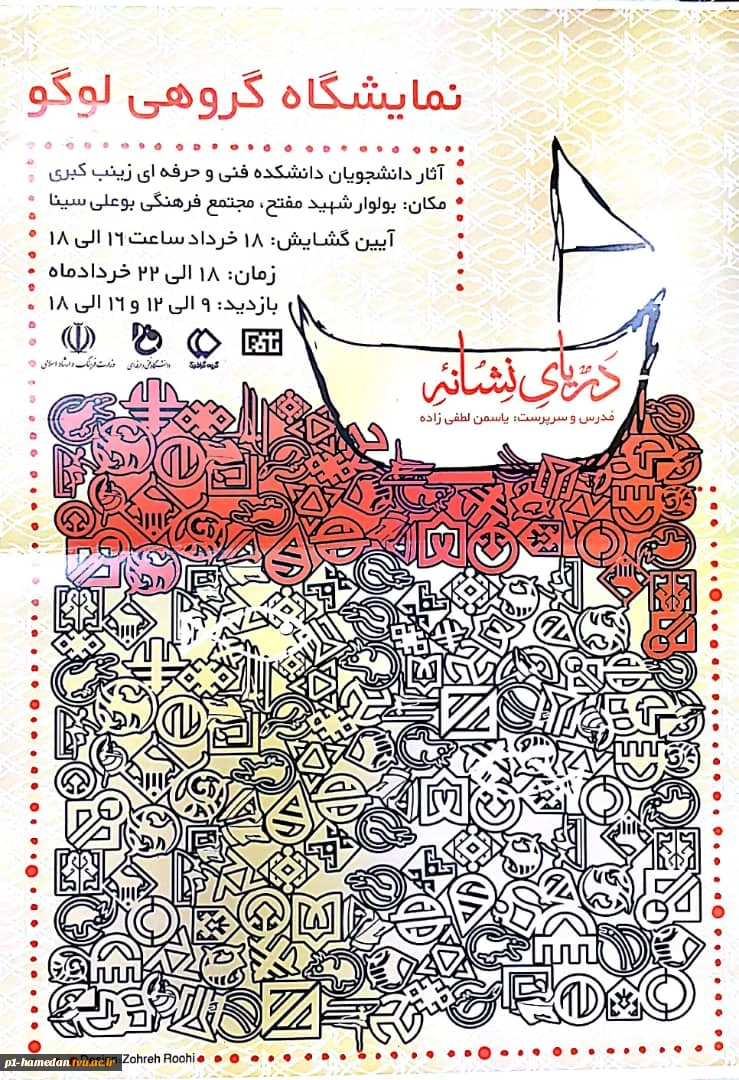 نمایشگاه گروهی لوگو
آثار دانشجویان دانشکده فنی و حرفه ای زینب کبری
مکان: بولوار شهید مفتح، مجتمع فرهنگی بوعلی سینا
آیین گشایش: ۱۸ خرداد ساعت ۱۶ الی ۱۸
زمان: ۱۸ الی ۲۲ خردادماه
بازدید: ۹ الی ۱۲ و ۱۶ الی ۱۸
وزارت فرهنگ و ارشاد اسلامی
دریای نشانه
مدرس و سرپرست: یاسمن لطفی زاده
Design: Zohreh Roohi
p1-hamedan.tvu.ac.ir